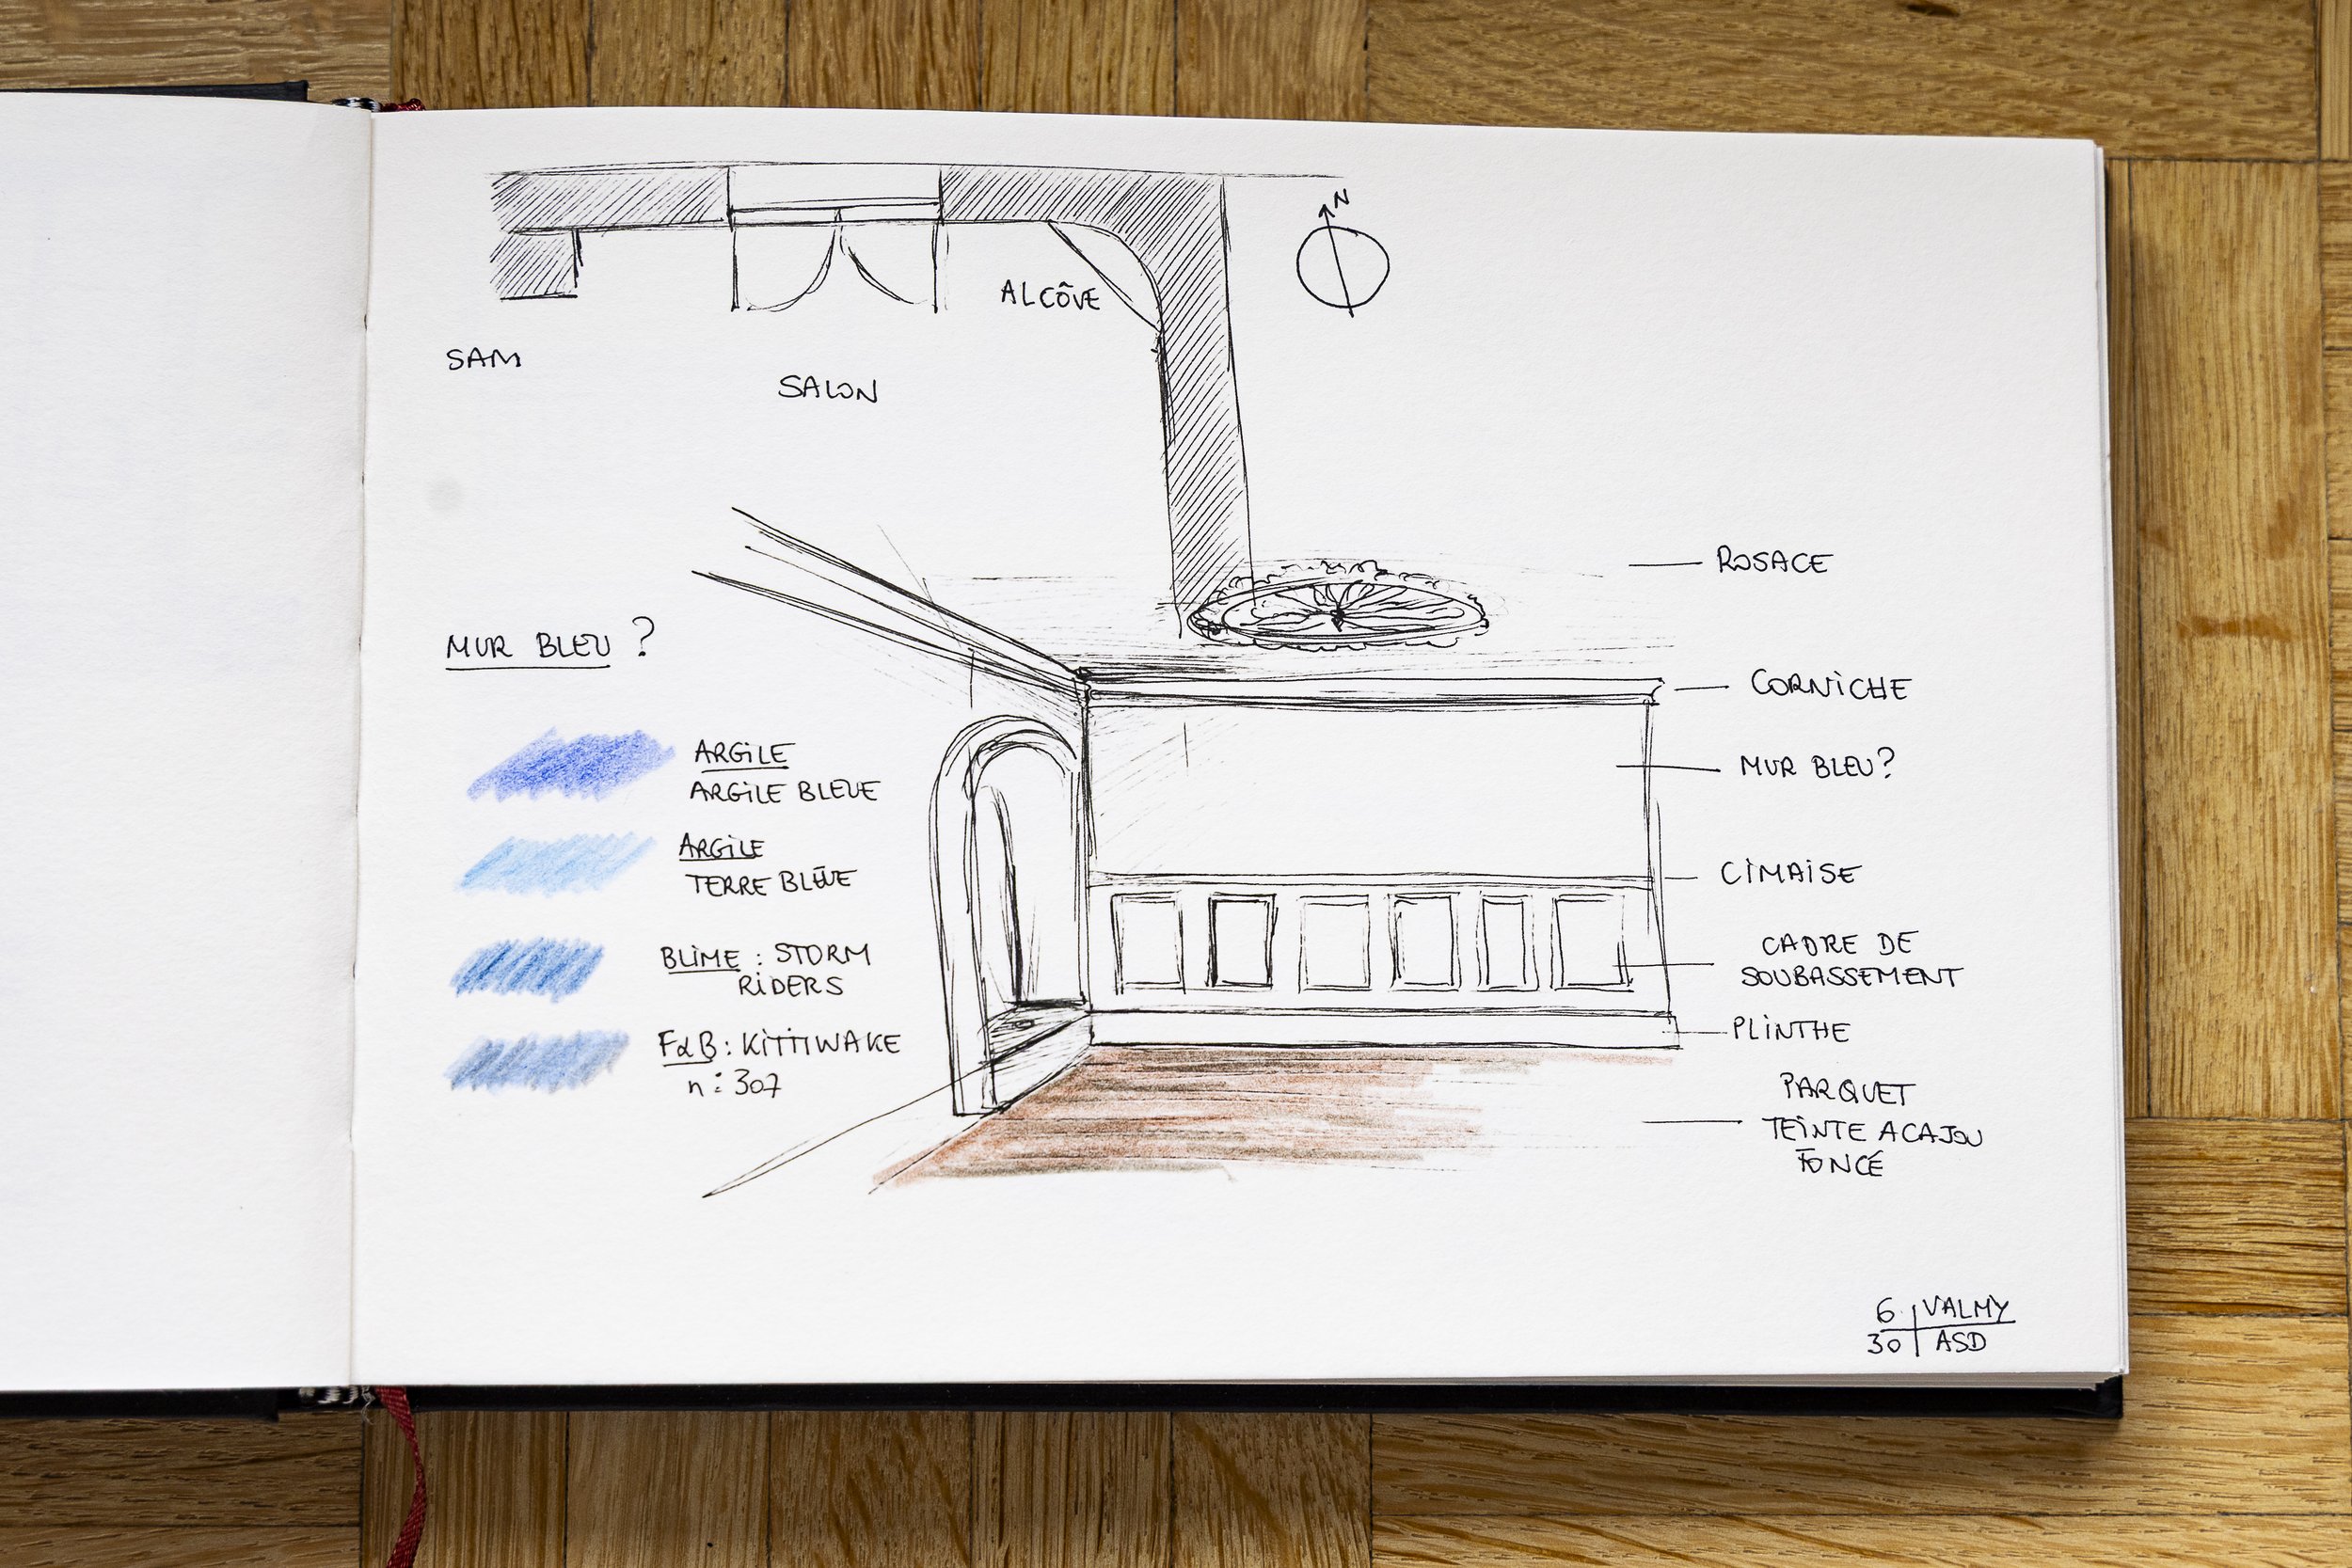 N
ALCÔVE
SAM
SALON
ROSACE
MUR BLEU ?
CORNICHE
MUR BLEU?
ARGILE
ARGILE BLEUE
ARGILE
TERRE BLEUE
CIMAISE
BLIME : STORM
RIDERS
CADRE DE
SOUBASSEMENT
F&B : KITTIWAKE
n° 307
PLINTHE
PARQUET
TEINTE ACAJOU
FONCÉ
6 VALMY
30 ASD